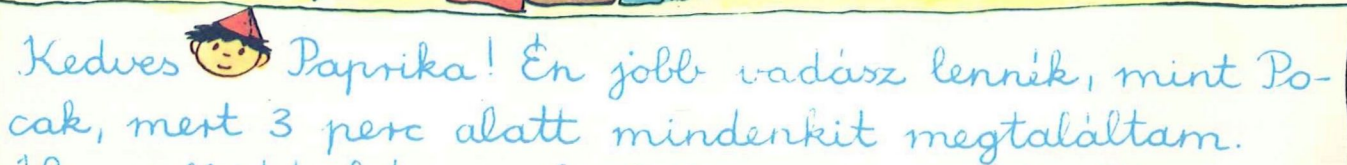 Kedves Paprika! Én jobb vadász lennék, mint Po-
cak, mert 3 perc alatt mindenkit megtaláltam.